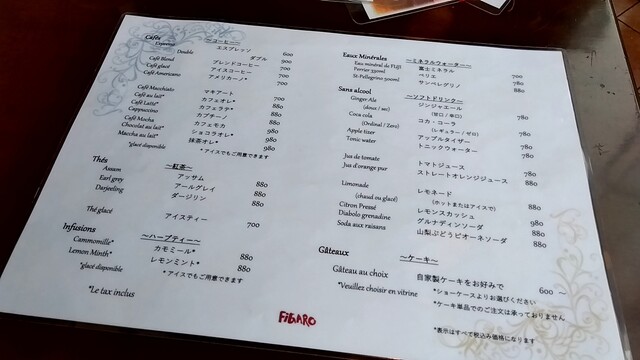 Cafés ～コーヒー～
Espresso エスプレッソ 600
Double ダブル 900
Café Blend ブレンドコーヒー 700
Café glacé アイスコーヒー 700
Café Americano アメリカーノ* 700
Café Macchiato マキアート 700
Café au lait* カフェオレ* 980
Café Latte* カフェラテ* 880
Cappuccino カプチーノ 880
Café Mocha カフェモカ 980
Chocolat au lait* ショコラオレ* 980
Maccha au lait* 抹茶オレ* 980
*glacé disponible *アイスもご用意できます
Thés ～紅茶～
Assam アッサム 880
Earl grey アールグレイ 880
Darjeling ダージリン 880
Thé glacé アイスティー 700
Infusions ～ハーブティー～
Cammomille* カモミール* 880
Lemon Minth* レモンミント* 880
*glacé disponible *アイスでもご用意できます
*Le tax inclus
Eaux Minérales ～ミネラルウォーター～
Eau minéral de FUJI 富士ミネラル 700
Perrier 330ml ペリエ 780
St-Pellegrino 500ml サンペレグリノ 780
Sans alcool ～ソフトドリンク～
Ginger-Ale ジンジャエール 780
(doux / sec) (甘口 / 辛口)
Coca cola コカ・コーラ 780
(Ordinal / Zero) (レギュラー / ゼロ)
Apple tizer アップルタイザー 780
Tonic water トニックウォーター 780
Jus de tomate トマトジュース 780
Jus d'orange pur ストレートオレンジジュース 880
Limonade レモネード 880
(chaud ou glacé) (ホットまたはアイスで)
Citron Pressé レモンスカッシュ 980
Diabolo grenadine グルナディンソーダ 880
Soda aux raisans 山梨ぶどうピオーネソーダ 880
Gâteaux ～ケーキ～
Gâteau au choix 自家製ケーキをお好みで 600 ～
*Veuillez choisir en vitrine *ショーケースよりお選びください
*ケーキ単品でのご注文は承っておりません
FIGARO
*表示はすべて税込み価格になります